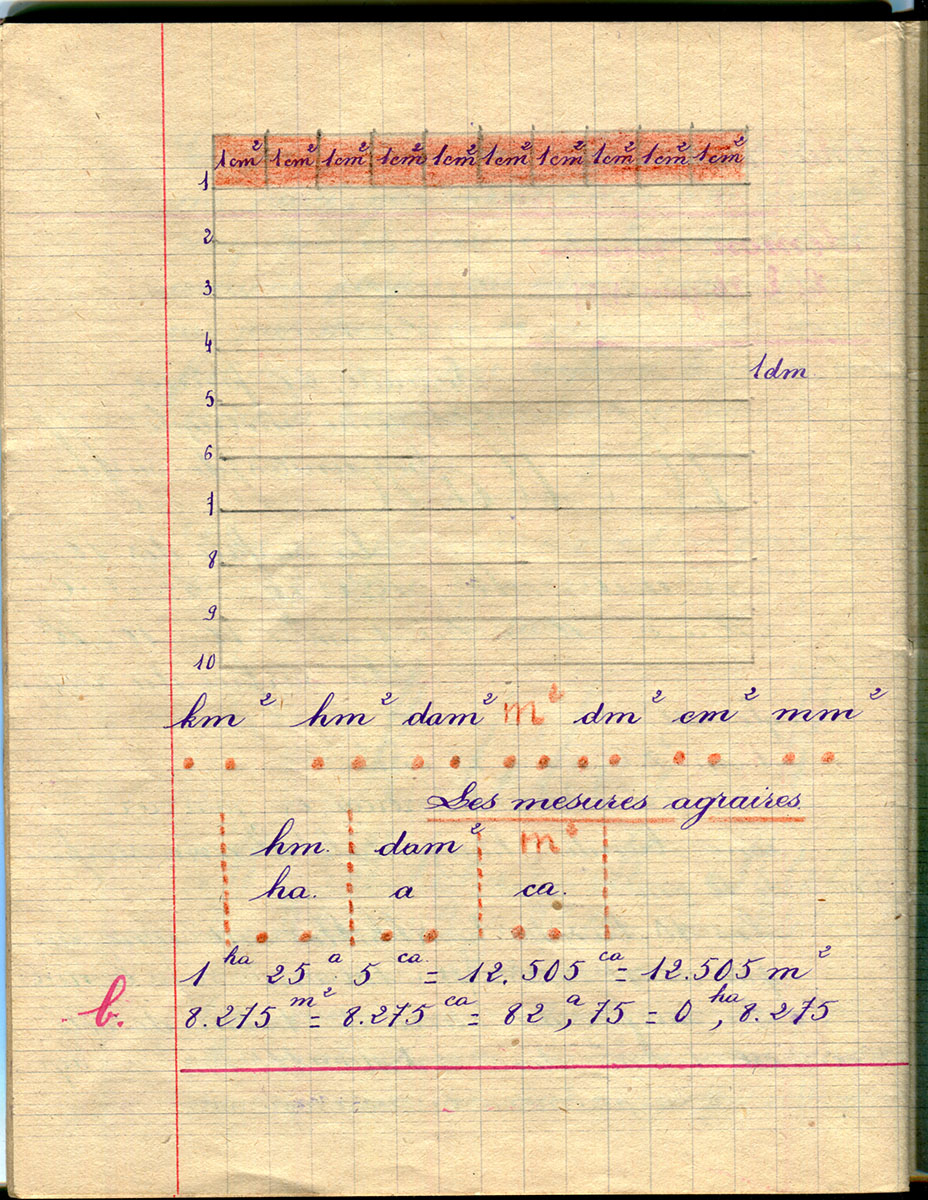 1cm² 1cm² 1cm² 1cm² 1cm² 1cm² 1cm² 1cm² 1cm² 1cm²
1
2
3
4
1dm
5
6
7
8
9
10
km² hm² dam² m² dm² cm² mm²
Les mesures agraires
hm. dam² m²
ha. a ca.
1 ha 25 a 5 ca = 12.505 ca = 12.505 m²
b. 8.275 m² = 8.275 ca = 82 a, 75 = 0 ha, 8.275